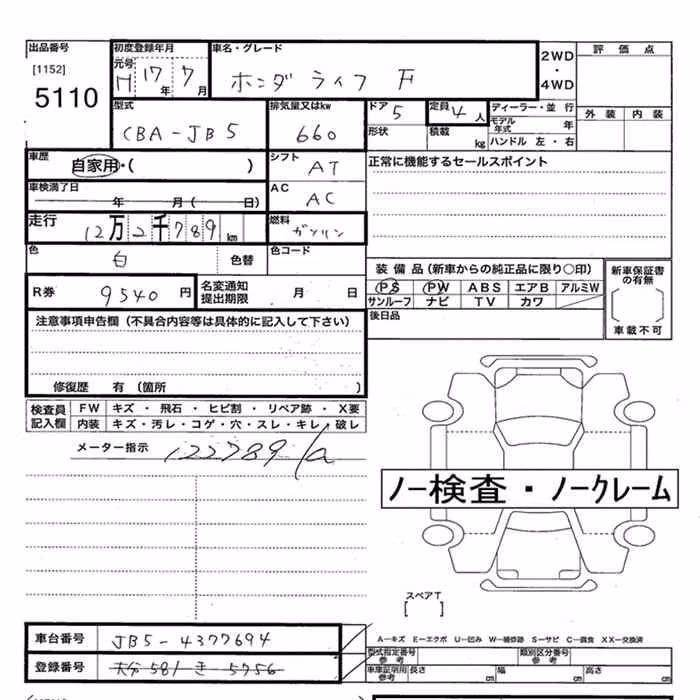 出品番号 初度登録年月 車名・グレード 2WD 評価点
[1152] 元号 H 17年 7月 ホンダ ライフ F ・
5110 4WD 外装 内装
型式 排気量又はkw ドア 5 定員 4人 ディーラー・並行
CBA-JB5 660 形状 積載 kg モデル年式 年
ハンドル 左・右
車歴 自家用・( ) シフト AT 正常に機能するセールスポイント
車検満了日 年 月( 日) AC AC
走行 12万2千789km 燃料 ガソリン
色 白 色替 色コード
装備品(新車からの純正品に限り○印) 新車保証書の有無
R券 9540円 名変通知提出期限 月 日 PS PW ABS エアB アルミW
サンルーフ ナビ TV カワ 車載不可
後日品
注意事項申告欄(不具合内容等は具体的に記入して下さい)
修復歴 有(箇所 )
検査員記入欄 FW キズ・飛石・ヒビ割・リペア跡・X要
内装 キズ・汚レ・コゲ・穴・スレ・キレ・破レ
メーター指示 122789
ノー検査・ノークレーム
スペアT
[ ]
車台番号 JB5-4377694
A-キズ E-エクボ U-凹み W-補修跡 S-サビ C-腐食 XX-交換済
型式指定番号 参考 類別区分番号 参考
登録番号 大分 581 き 5756 車庫証明用参考 長さ cm 幅 cm 高さ cm